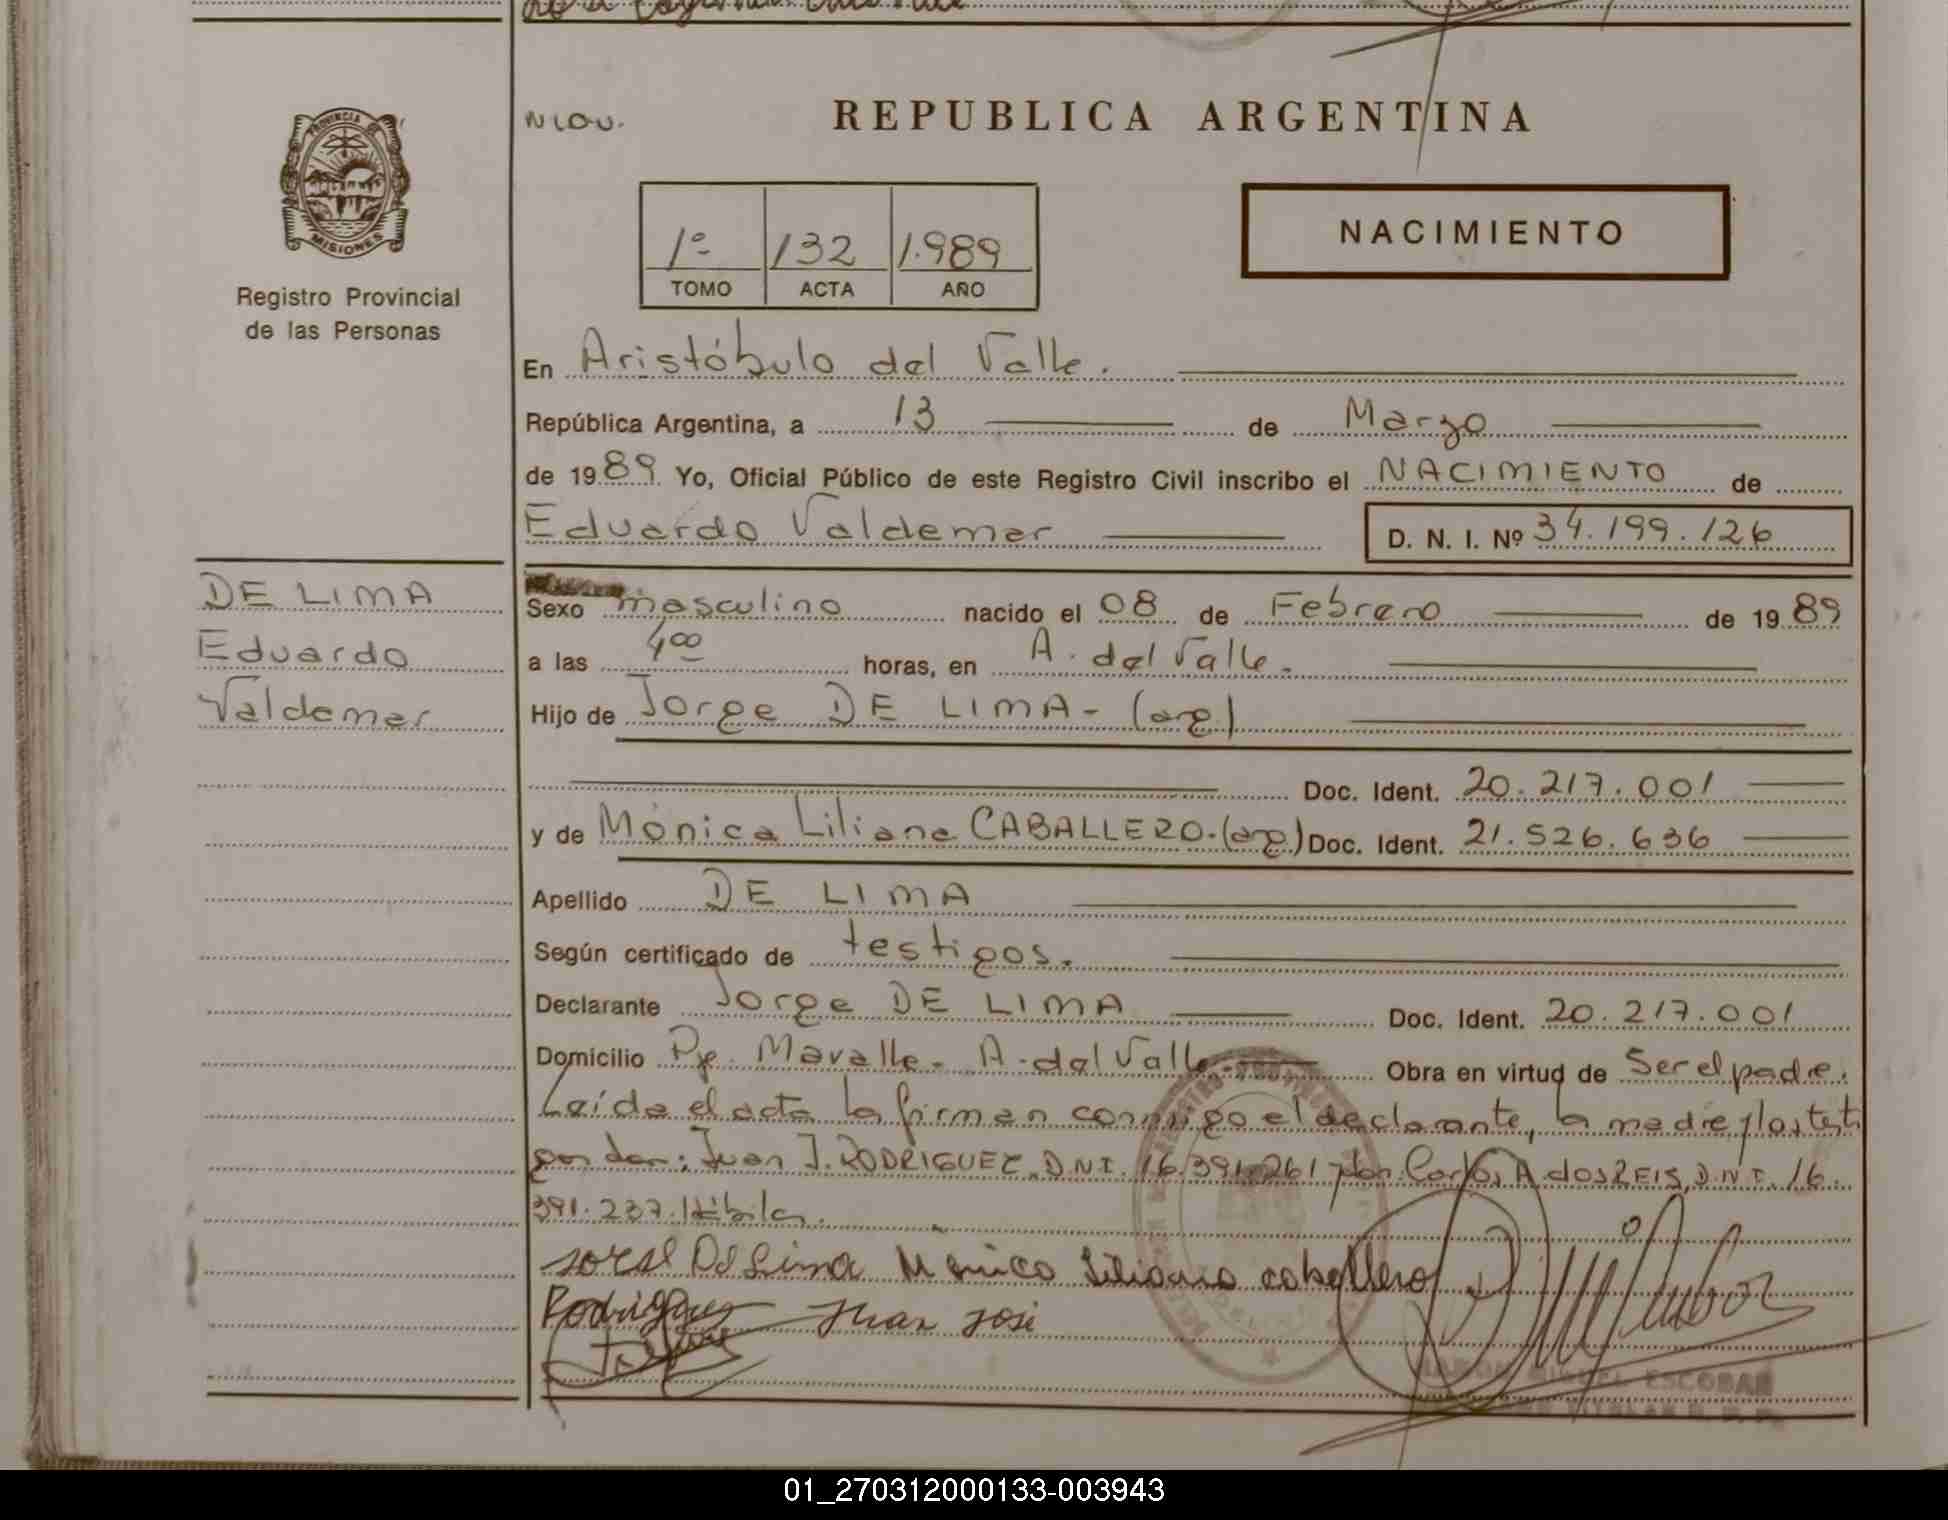 PROVINCIA DE
MISIONES
Registro Provincial
de las Personas
REPUBLICA ARGENTINA
NACIMIENTO
1º 132 1.989
TOMO ACTA AÑO
En Aristóbulo del Valle.
República Argentina, a 13 de Marzo
de 1989 Yo, Oficial Público de este Registro Civil inscribo el NACIMIENTO de
Eduardo Valdemar D. N. I. Nº 34.199.126
DE LIMA
Eduardo
Valdemar
Sexo masculino nacido el 08 de Febrero de 1989
a las 4 00 horas, en A. del Valle.
Hijo de Jorge DE LIMA - (arg)
Doc. Ident. 20.217.001
y de Mónica Liliana CABALLERO. (arg.) Doc. Ident. 21.526.636
Apellido DE LIMA
Según certificado de testigos.
Declarante Jorge DE LIMA Doc. Ident. 20.217.001
Domicilio Pje. Mavalle - A. del Valle Obra en virtud de Ser el padre.
Leída el acta la firman conmigo el declarante, la madre y los testi
gos don: Juan J. RODRIGUEZ, D.N.I. 16.391.261 y don Carlos A. dos REIS, D.N.I. 16.
391.237. Hábiles.
Jorge De Lima Mónica Liliana Caballero
Rodriguez Juan José
MIGUEL ESCOBAR
01_270312000133-003943